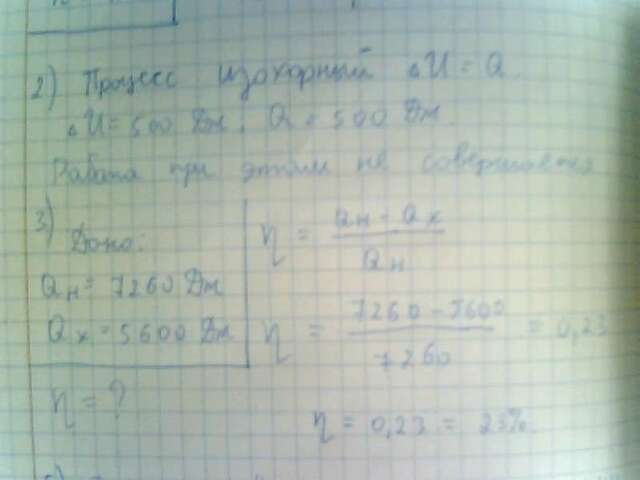 2) Процесс изохорный ΔU = Q.
ΔU = 500 Дж. Q = 500 Дж.
Работа при этом не совершается
3) Дано:
Qн = 7260 Дж
Qх = 5600 Дж
η = ?
η = Qн - Qх / Qн
η = 7260 - 5600 / 7260 = 0,23
η = 0,23 = 23%.